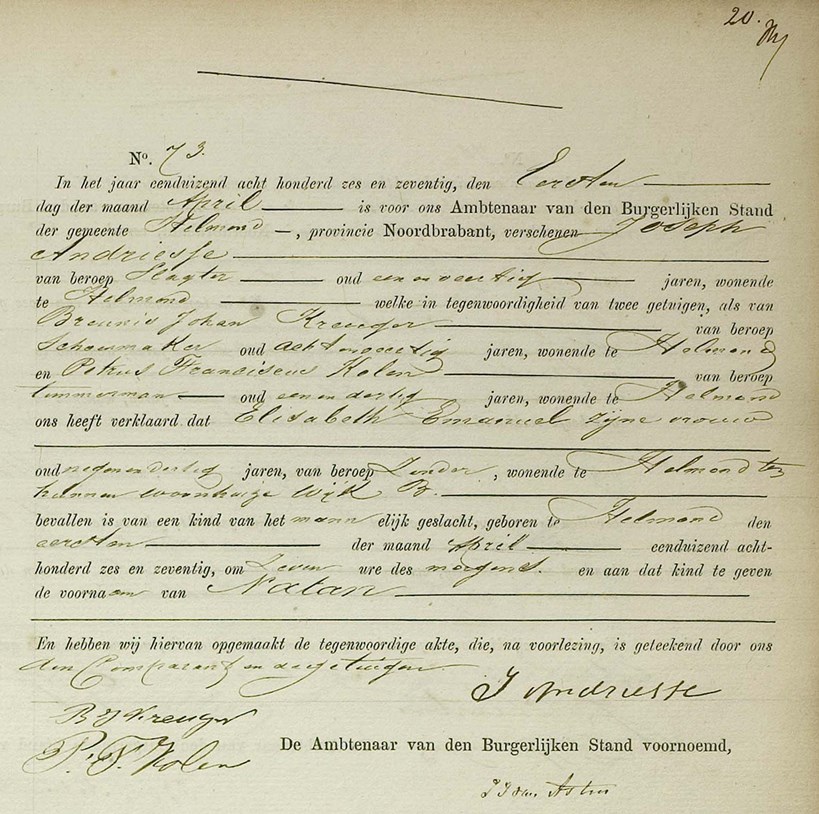 20.
No. 73.
In het jaar eenduizend acht honderd zes en zeventig, den Eersten
dag der maand April is voor ons Ambtenaar van den Burgerlijken Stand
der gemeente Helmond, provincie Noordbrabant, verschenen Joseph
Andriesse
van beroep Slagter oud een en veertig jaren, wonende
te Helmond welke in tegenwoordigheid van twee getuigen, als van
Johan Kreuger van beroep
Schoenmaker oud acht en veertig jaren, wonende te Helmond
en Petrus Franciscus Kolen van beroep
timmerman oud een en dertig jaren, wonende te Helmond
ons heeft verklaard dat Elisabeth Emanuel zijne vrouw
oud negen en dertig jaren, van beroep Zonder, wonende te Helmond ten
hunnen woonhuize Wijk B.
bevallen is van een kind van het mannelijk geslacht, geboren te Helmond den
eersten der maand April eenduizend acht-
honderd zes en zeventig, om Zeven ure des morgens. en aan dat kind te geven
de voornaam van Natan
En hebben wij hiervan opgemaakt de tegenwoordige akte, die, na voorlezing, is geteekend door ons
den Comparant en de getuigen
J Andriesse
B J Kreuger
P. F. Kolen
De Ambtenaar van den Burgerlijken Stand voornoemd,